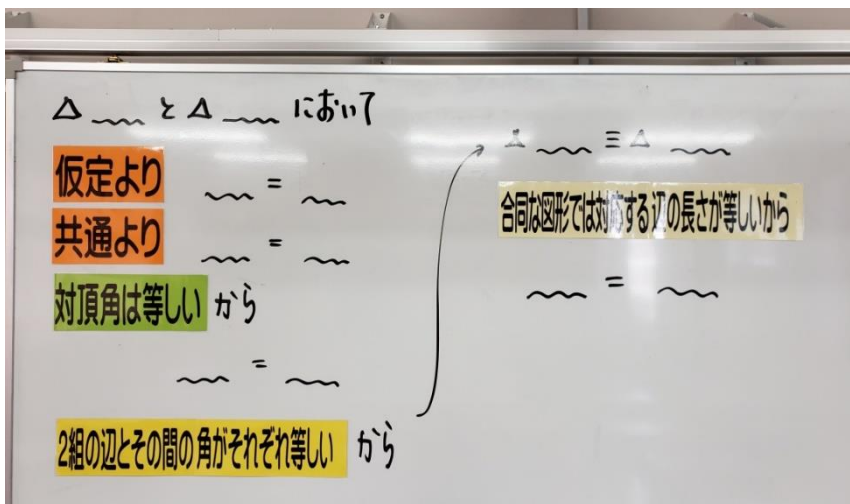 △ 〰 と △ 〰 において
仮定より 〰 = 〰
共通より 〰 = 〰
対頂角は等しい から
〰 = 〰
2組の辺とその間の角がそれぞれ等しい から
△ 〰 ≡ △ 〰
合同な図形では対応する辺の長さが等しいから
〰 = 〰